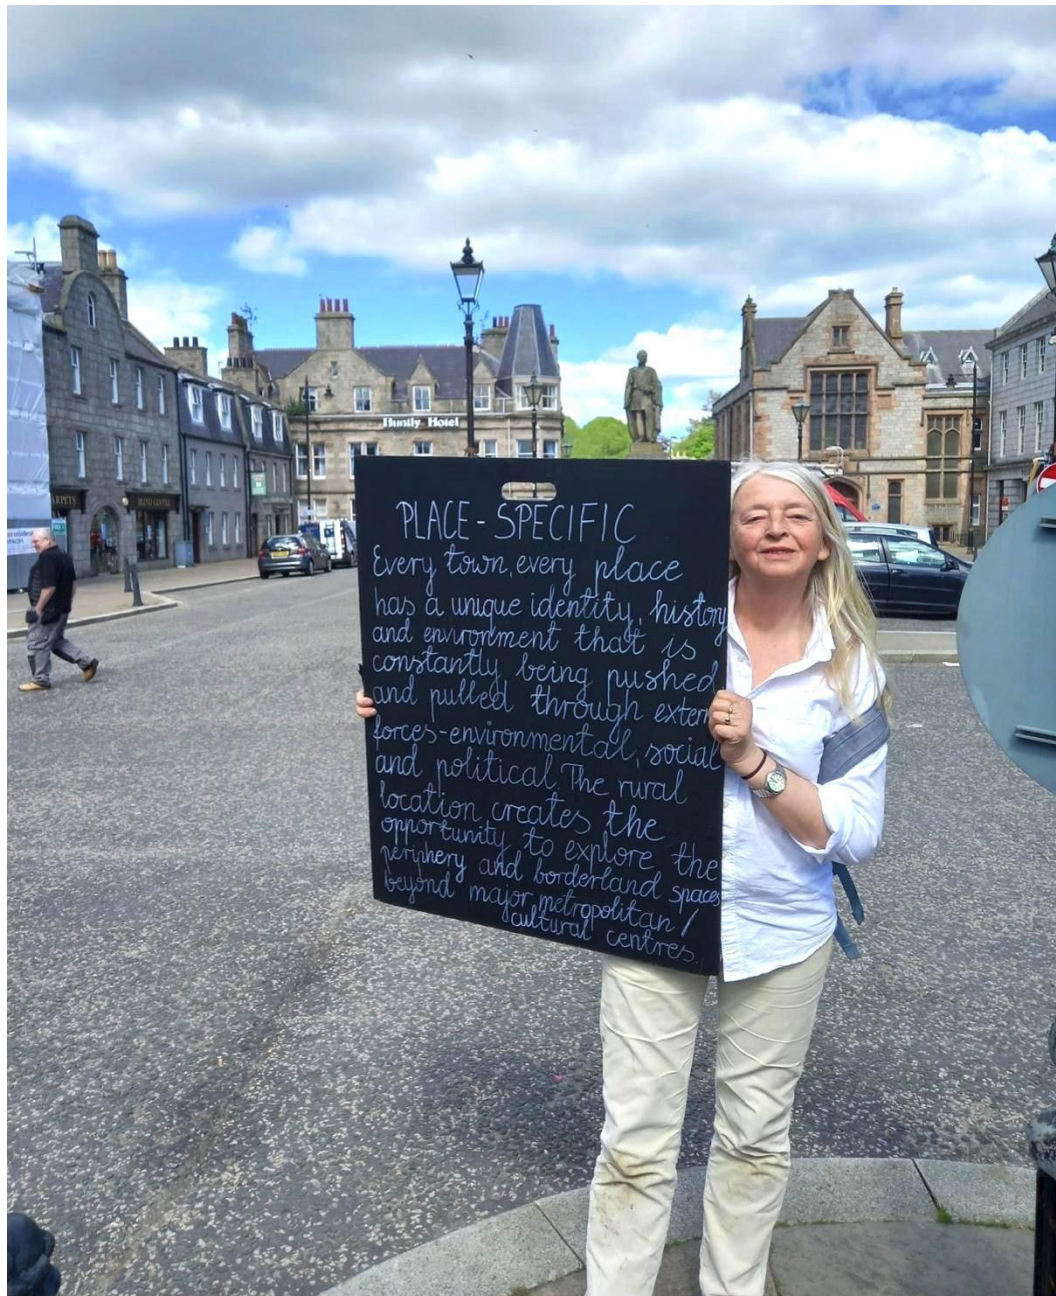 Huntly Hotel
ARPETS
BLIND CENTRE
PLACE-SPECIFIC
Every town, every place
has a unique identity, history
and environment that is
constantly being pushed
and pulled through extern
forces-environmental, social
and political. The rural
location creates the
opportunity to explore the
periphery and borderland spaces
beyond major metropolitan /
cultural centres.